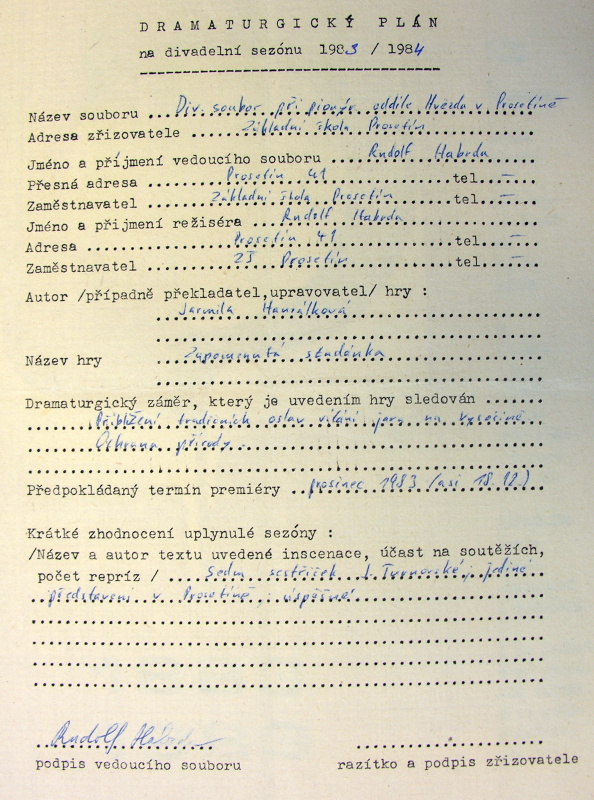 DRAMATURGICKÝ PLÁN
na divadelní sezónu 1983 / 1984
Název souboru ...Div. soubor při pionýr. oddíle Hvězda v Prosetíně
Adresa zřizovatele ...Základní škola Prosetín
Jméno a příjmení vedoucího souboru ...Rudolf Habrda
Přesná adresa ...Prosetín 41...tel. –
Zaměstnavatel ...Základní škola Prosetín...tel. –
Jméno a přijmení režiséra ...Rudolf Habrda
Adresa ...Prosetín 41...tel. –
Zaměstnavatel ...ZŠ Prosetín...tel. –
Autor /případně překladatel,upravovatel/ hry :
Jarmila Hanzálková
Název hry ...Zapomenutá studánka
Dramaturgický záměr, který je uvedením hry sledován ......
Přiblížení tradičních oslav vítání jara na Vysočině
Ochrana přírody.
Předpokládaný termín premiéry ...prosinec 1983 /asi 18.12./
Krátké zhodnocení uplynulé sezóny :
/Název a autor textu uvedené inscenace, účast na soutěžích,
počet repríz / ...Sedm sestřiček J. Turnovské; jediné
představení v Prosetíně; úspěšné
Rudolf Habrda
podpis vedoucího souboru
razítko a podpis zřizovatele